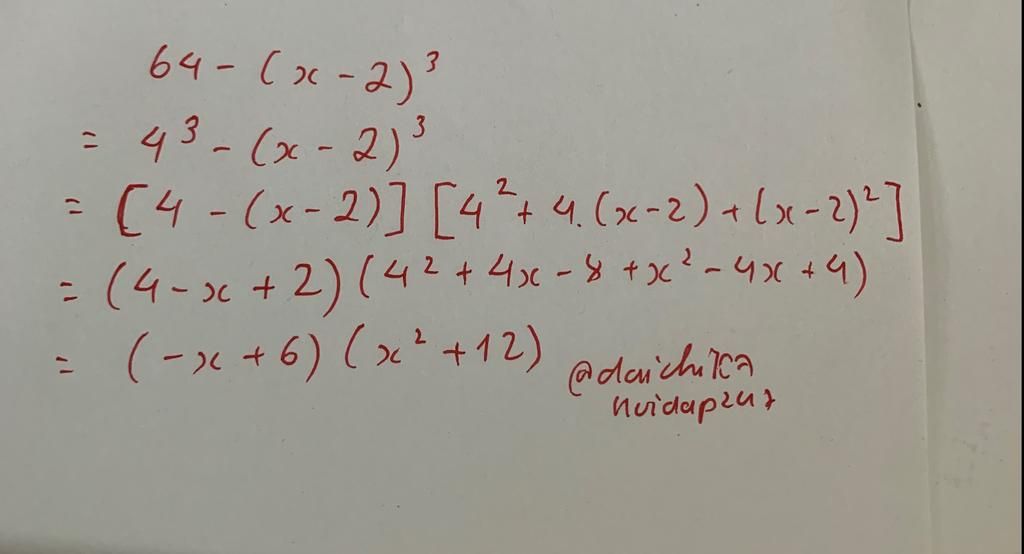 64 - (x - 2)³
= 4³ - (x - 2)³
= [4 - (x - 2)] [4² + 4.(x - 2) + (x - 2)²]
= (4 - x + 2) (4² + 4x - 8 + x² - 4x + 4)
= (-x + 6) (x² + 12)
hoidap247